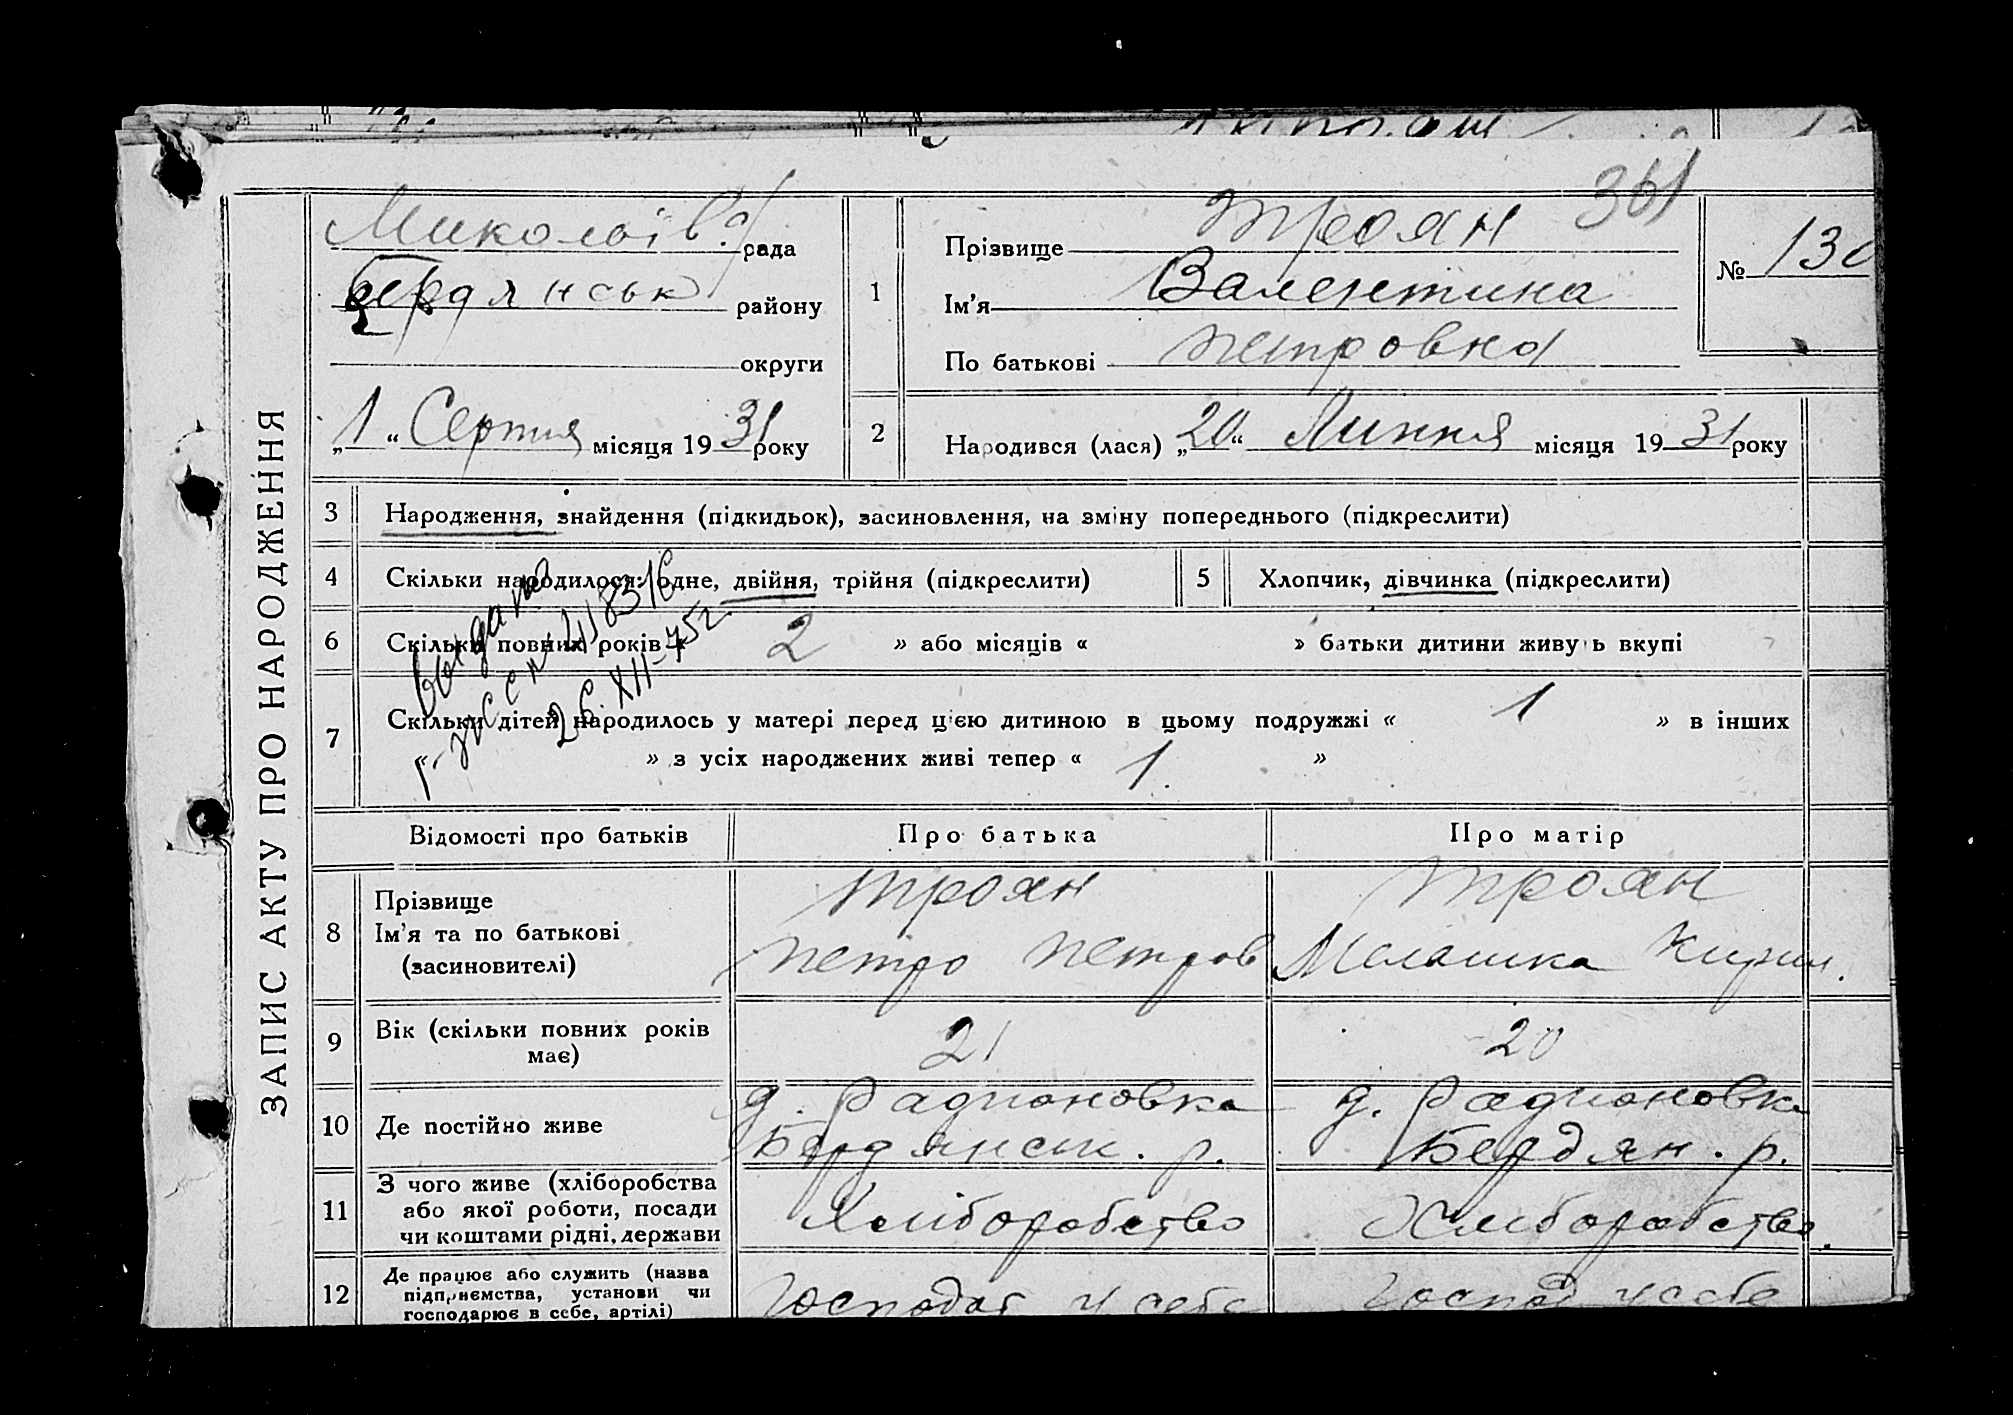 ЗАПИС АКТУ ПРО НАРОДЖЕННЯ
Миколаїв. рада
Бердянськ району
округи
„1“ Серпня місяця 1931 року
1
361
Прізвище Троян
Ім'я Валентина
По батькові Петровна
№ 130
2
Народився (лася) „20“ Липня місяця 1931 року
3 Народження, знайдення (підкидьок), засиновлення, на зміну попереднього (підкреслити)
4 Скільки народилося: одне, двійня, трійня (підкреслити)
5 Хлопчик, дівчинка (підкреслити)
6 Скільки повних років « 2 » або місяців « » батьки дитини живуть вкупі
7 Скільки дітей народилось у матері перед цією дитиною в цьому подружжі « 1 » в інших
» з усіх народжених живі тепер « 1. »
выдано
26.XII-752.
Відомості про батьків Про батька Про матір
8 Прізвище
Ім'я та по батькові
(засиновителі)
Троян
Петро Петров
Троян
Мелашка Кирил.
9 Вік (скільки повних років
має)
21
20
10 Де постійно живе
д. Радионовка
Бердянськ. р.
д. Радионовка
Бердян. р.
11 З чого живе (хліборобства
або якої роботи, посади
чи коштами рідні, держави
Хліборобство
Хліборобство.
12 Де працює або служить (назва
підприємства, установи чи
господарює в себе, артілі)
Господар у себе
Господ у себе